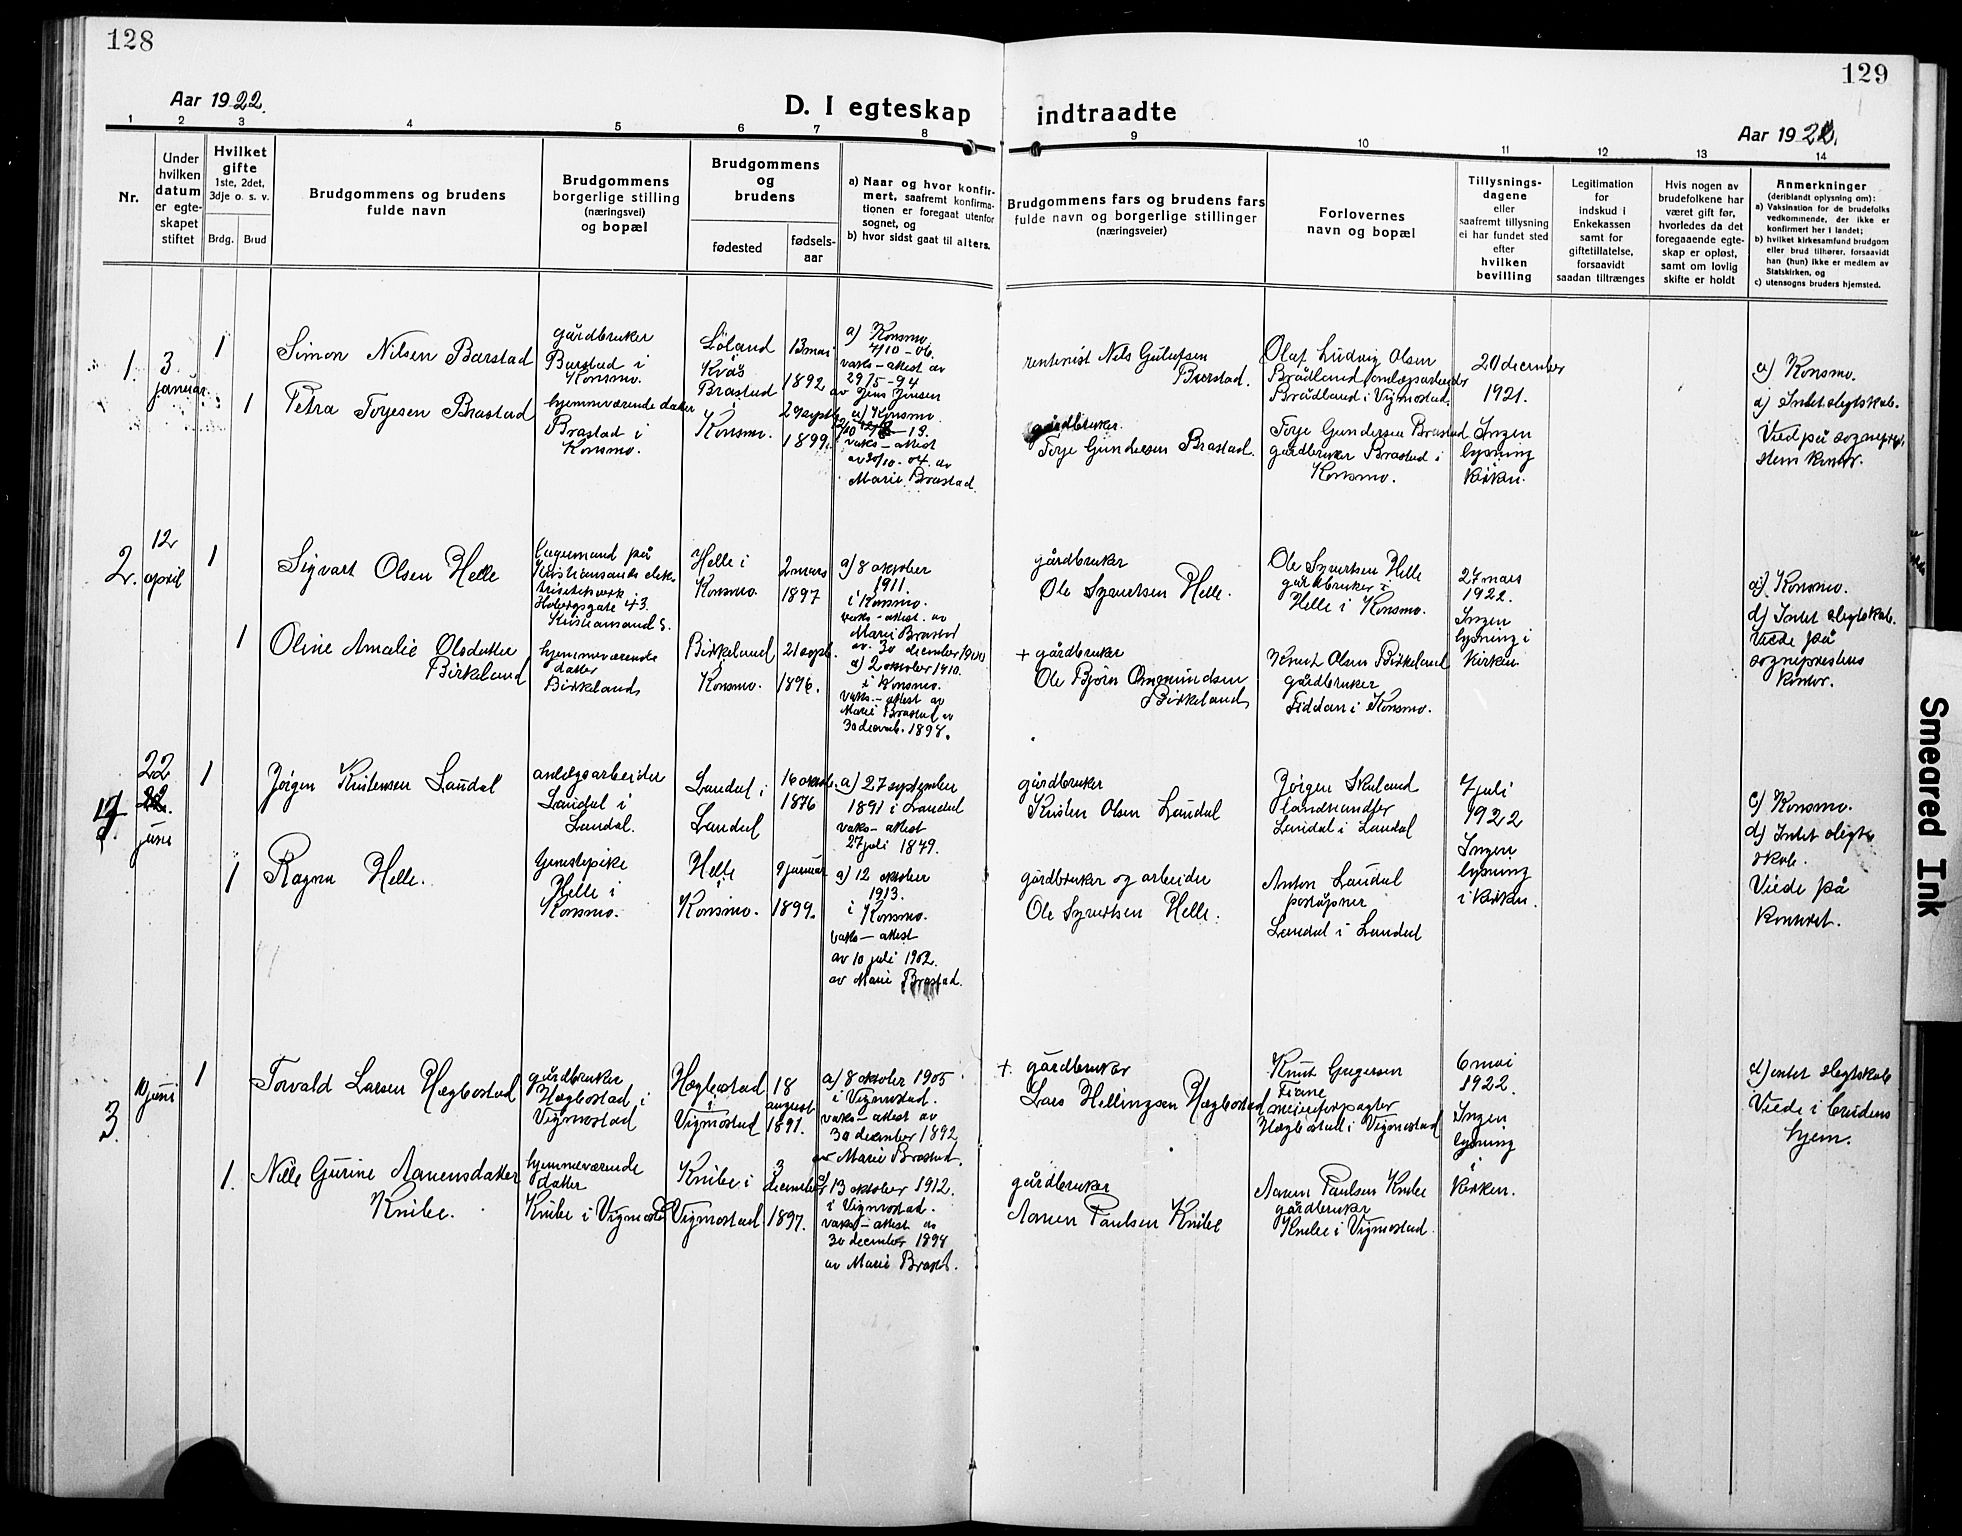 128
Aar 1922.
D. I egteskap
1 2 3 4 5 6 7 8
Nr.
Under
hvilken
datum
er egte-
skapet
stiftet
Hvilket
gifte
1ste, 2det,
3dje o. s. v.
Brdg. Brud
Brudgommens og brudens
fulde navn
Brudgommens
borgerlige stilling
(næringsvei)
og bopæl
Brudgommens
og
brudens
fødested
fødsels-
aar
a) Naar og hvor konfir-
mert, saafremt konfirma-
tionen er foregaat utenfor
sognet, og
b) hvor sidst gaat til alters.
1.
3
januar
1
Simon Nilsen Barstad
gårdbruker
Barstad i
Konsmo.
Løland
Kvås
13 mai
1892
a) Konsmo
vaks-attest av
29/5-94
av Jens Jensen
1
Petra Torjesen Brastad
hjemmeværende datter
Brastad i
Konsmo.
Brastad
Konsmo.
1899.
a) Konsmo
vaks-attest
av 30/10-04. av
Marie Brastad.
2.
12
april
1
Sigvart Olsen Helle
Kristiansand S.
Helle i
Konsmo
2 mars
1897
a) 8 oktober
1911.
i Konsmo.
vaks-attest. av
Marie Brastad
av 30 december
1
Oline Amalie Olsdatter
Birkeland
hjemmeværende
datter
Birkeland
Birkeland
Konsmo.
21 septb.
1896.
a) 2 oktober 1910.
i Konsmo.
vaks-attest av
Marie Brastad av
4.
22
juni
1
Jørgen Kristensen Laudal
anlægsarbeider
Laudal i
Laudal.
Laudal i
Laudal
16
1876
a) 27 september
1891 i Laudal
vaks-attest
27 juli 1879.
1
Ragna Helle.
tjenestepike
Helle i
Konsmo.
Helle
i
Konsmo.
9 januar
1899.
a) 12 oktober
1913.
i Konsmo.
vaks-attest
av 10 juli 1902.
av Marie Brastad.
3.
10 juni
1
Torvald Larsen Hægbostad
gårdbruker
Hægbostad i
Vigmostad
Hægbostad
i
Vigmostad
18
august
1891.
a) 8 oktober 1905
i Vigmostad.
vaks-attest av
30 december 1892
av Marie Brastad.
1.
Nille Gurine Aanensdatter
Knibe.
hjemmeværende
datter
Knibe i Vigmostad
Knibe i
Vigmostad
3
december
1897.
a) 13 oktober 1912.
i Vigmostad.
vaks-attest av
30 december 1898
av Marie Brastad.
129
indtraadte
Aar 1922.
9 10 11 12 13 14
Brudgommens fars og brudens fars
fulde navn og borgerlige stillinger
(næringsveier)
Forlovernes
navn og bopæl
Tillysnings-
dagene
eller
saafremt tillysning
ei har fundet sted
efter
hvilken
bevilling
Legitimation
for
indskud i
Enkekassen
samt for
giftetillatelse,
forsaavidt
saadan tiltrænges
Hvis nogen av
brudefolkene har
været gift før,
hvorledes da det
foregaaende egte-
skap er opløst,
samt om lovlig
skifte er holdt
Anmerkninger
(deriblandt oplysning om):
a) Vaksination for de brudefolks
vedkommende, der ikke er
konfirmert her i landet;
b) hvilket kirkesamfund brudgom
eller brud tilhører, forsaavidt
han (hun) ikke er medlem av
Statskirken, og
c) utensogns bruders hjemsted.
rentenist Nils
Barstad.
Olaf Ludvig Olsen
Brådland anlægsarbeider
Brådland i Vigmostad.
20 december
1921.
c) Konsmo.
d) Intet slegtskab.
Viet på sognepre-
stens kontor.
gårdbruker.
Torje Gundersen Brastad.
Torje Gundersen Brastad
gårdbruker Brastad i
Konsmo.
Ingen
lysning
kirken.
gårdbruker
Ole Syvertsen Helle.
Ole Syvertsen Helle
gårdbruker i
Helle i Konsmo.
27 mars
1922.
Ingen
lysning i
kirken
c) Konsmo.
d) Intet slegtskab.
Viede på
sogneprestens
kontor.
+ gårdbruker
Ole Bjørn Omundsen
Birkeland
Knut Olsen Birkeland
gårdbruker
Fiddan i Konsmo.
gårdbruker
Kristen Olsen Laudal
Jørgen Skuland
landhandler
Laudal i Laudal
7 juli
1922
Ingen
lysning
i kirken.
c) Konsmo.
d) Intet slegt-
skab.
Viede på
kontoret.
gårdbruker og arbeider
Ole Syvertsen Helle.
Anton Laudal
poståpner
Laudal i Laudal
+ gårdbruker
Lars Hellingsen Hægbostad
Knut Gregersen
Fiane
meieriforpagter
Hægbostad i Vigmostad
6 mai
1922.
Ingen
lysning
i
kirken.
d) intet slegtskab
Viede i brudens
hjem.
gårdbruker
Aanen Paulsen Knibe
Aanen Paulsen Knibe
gårdbruker
Knibe i Vigmostad.
Smeared Ink